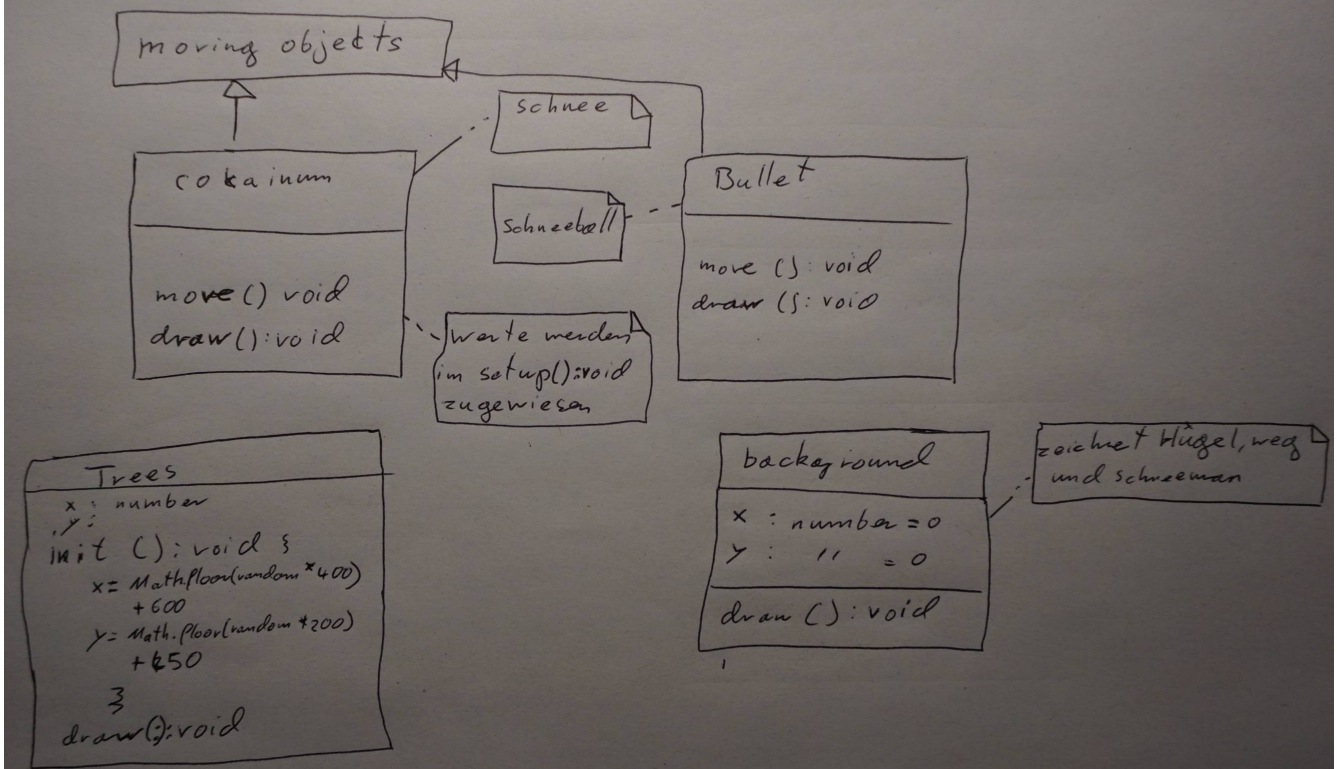 moving objekts
schnee
cokainum
move() void
draw():void
Schneeball
Bullet
move (): void
draw (): void
Werte werden
im setup():void
zugewiesen
Trees
x : number
y :
init (): void {
x= Math.floor(random*400)
+600
y= Math.floor(random*200)
+450
}
draw():void
background
x : number = 0
y : " = 0
draw (): void
zeichnet Hügel, weg
und schneeman